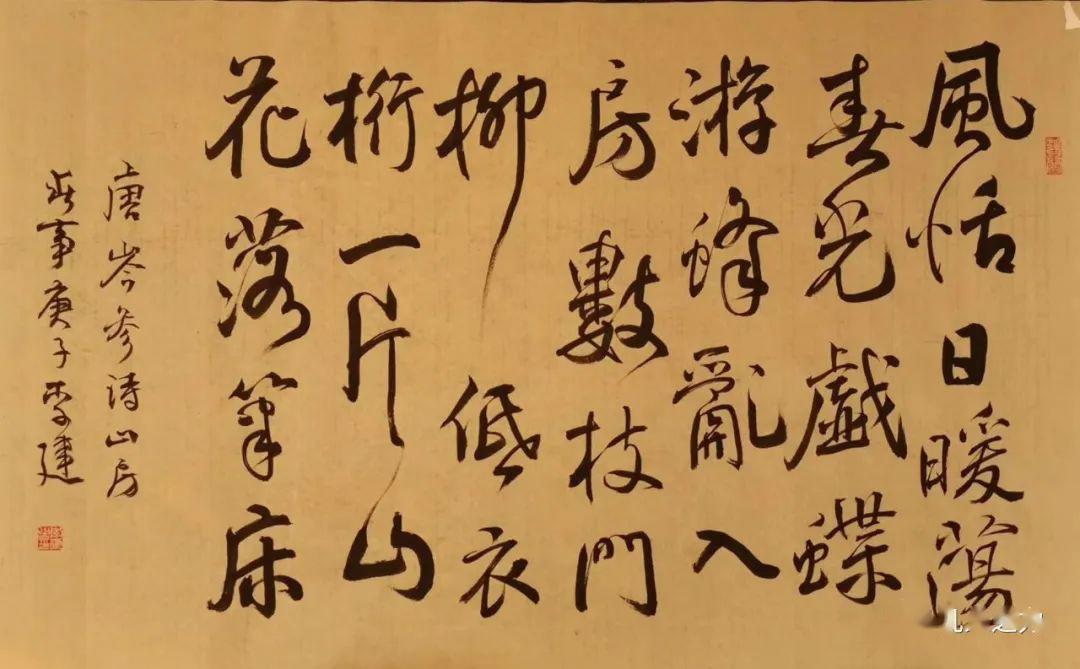 風恬日暖蕩
春光戲蝶
游蜂亂入
房數枝門
柳低衣
桁一片山
花落筆床
唐岑參詩山房
春事庚子李建